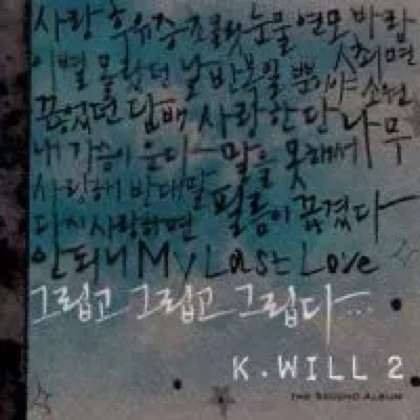 사랑 후유증 눈물 연모 바람
이별 몰랐던 날 반복일 뿐이야 최면 소원
끊었던 담배 사랑한단 나무
내 가슴이 운다 말을 못해서
사랑해 반대말 필름이 끊겼다
다시 사랑하면
안되니 My Last Love
그립고 그립고 그립다...
K.WILL 2
THE SECOND ALBUM